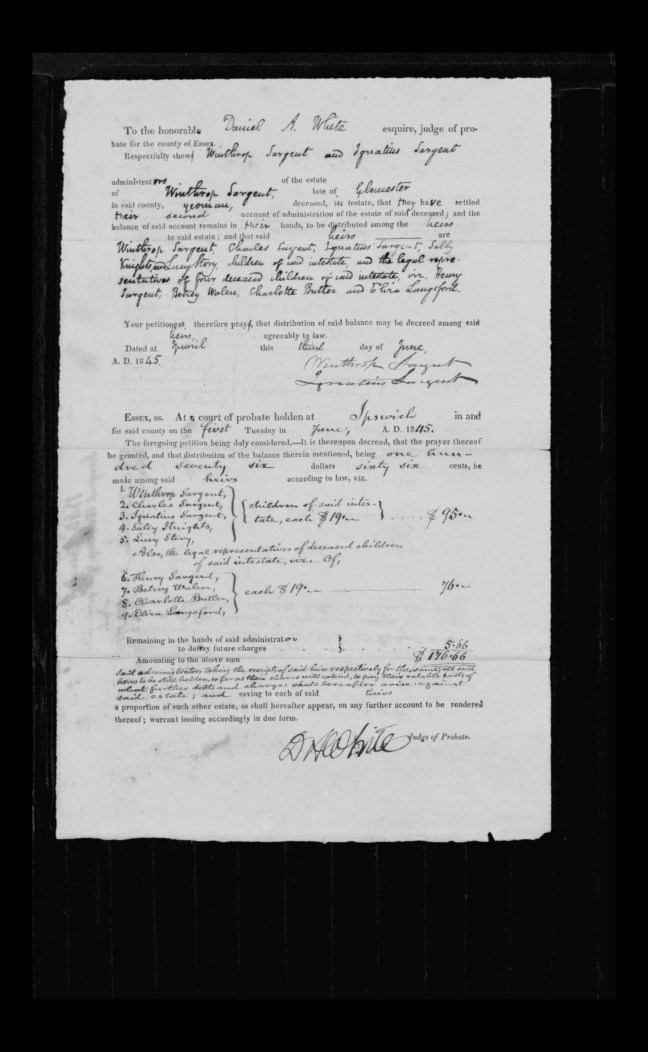 To the honorable Daniel A. White esquire, judge of pro-
bate for the county of Essex.
Respectfully shews Winthrop Sargent and Ignatius Sargent
administrators of the estate
of Winthrop Sargent, late of Gloucester
in said county, yeoman, deceased, intestate, that they have settled
their second account of administration of the estate of said deceased; and the
balance of said account remains in their hands, to be distributed among the heirs
to said estate; and that said heirs are
Winthrop Sargent, Charles Sargent, Ignatius Sargent, Sally
Knights, and Lucy Story, children of said intestate, and the legal repre-
sentatives of four deceased children of said intestate, viz. Henry
Sargent, Betsey Walen, Charlotte Butler and Eliza Langsford.
Your petitioners therefore pray, that distribution of said balance may be decreed among said
heirs, agreeably to law.
Dated at Ipswich this third day of June,
A. D. 1845.
Winthrop Sargent
Ignatius Sargent
Essex, ss. At a court of probate holden at Ipswich in and
for said county on the first Tuesday in June, A. D. 1845.
The foregoing petition being duly considered,—It is thereupon decreed, that the prayer thereof
be granted, and that distribution of the balance therein mentioned, being one hun-
dred seventy six dollars sixty six cents, be
made among said heirs according to law, viz.
1. Winthrop Sargent,
2. Charles Sargent, children of said intes-
3. Ignatius Sargent, tate, each $19.— $95.—
4. Salley Knights,
5. Lucy Story,
Also, the legal representatives of deceased children
of said intestate, viz. Of,
6. Henry Sargent,
7. Betsey Walen, each $19.— 76.—
8. Charlotte Butler,
9. Eliza Langsford,
Remaining in the hands of said administrator
to defray future charges 5.66
Amounting to the above sum $176.66
said administrators taking the receipts of said heirs respectively for the same; all said
heirs to be still holden, so far as their shares will extend, to pay their ratable parts of
what further debts and charges shall hereafter arise against
said estate; and saving to each of said heirs
a proportion of such other estate, as shall hereafter appear, on any further account to be rendered
thereof; warrant issuing accordingly in due form.
D A White Judge of Probate.